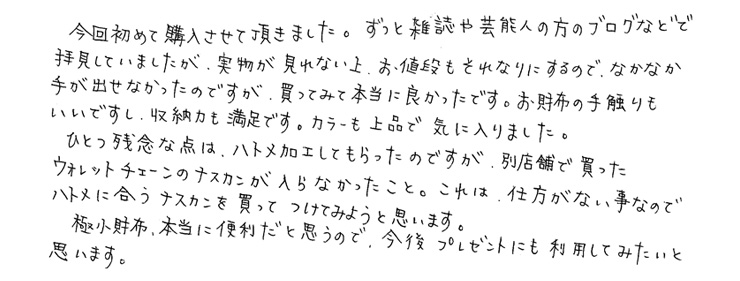 今回初めて購入させて頂きました。ずっと雑誌や芸能人の方のブログなどで
拝見していましたが、実物が見れない上、お値段もそれなりにするので、なかなか
手が出せなかったのですが、買ってみて本当に良かったです。お財布の手触りも
いいですし、収納力も満足です。カラーも上品で気に入りました。
ひとつ残念な点は、ハトメ加工してもらったのですが、別店舗で買った
ウォレットチェーンのナスカンが入らなかったこと。これは、仕方がない事なので
ハトメに合うナスカンを買ってつけてみようと思います。
極小財布、本当に便利だと思うので、今後プレゼントにも利用してみたいと
思います。